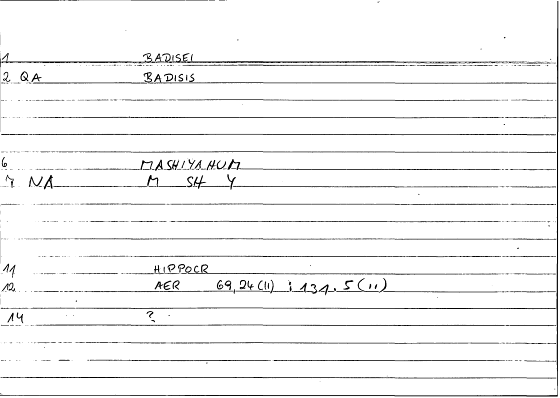 1 BADISEI
2 QA BADISIS
6 MASHIYAHUM
7 NA M SH Y
11 HIPPOCR
12 AER 69,24(11) : 131.5(11)
14 ?